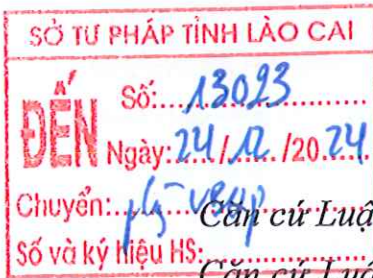 SỞ TƯ PHÁP TỈNH LÀO CAI
ĐẾN
Số:....13093.............
Ngày: 24/.12../2024
Chuyển:..........
Căn cứ Luậ
Số và ký hiệu HS:...............
Căn cứ Luậ